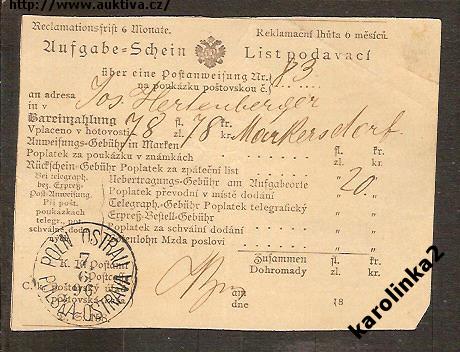 www.auktiva.cz
Reclamationsfrist 6 Monate. Reklamační lhůta 6 měsíců.
Aufgabe-Schein List podavací
über eine Postanweisung Nr. 83
na poukázku poštovskou č.
an adresa Jos. Hertenberger
in v
Bareinzahlung 78 fl. 78 kr. Markersdorf
Vplaceno v hotovosti zl. kr.
Anweisungs-Gebühr in Marken fl. kr.
Poplatek za poukázku v známkách zl. kr.
Rückschein-Gebühr Poplatek za zpáteční list
Bei telegraph. Uebertragungs-Gebühr am Aufgabeorte 20
bez. Expreß- Poplatek převodní v místě dodání
Post-Anweisung. Telegraph.-Gebühr Poplatek telegrafický
Při pošt. Expreß-Bestell-Gebühr
poukázkach Poplatek za schvální dodání
telegr., pot.
schválně dod. Botenlohn Mzda poslovi
POLN. OSTRAU
7
6
96
POLSKÁ OSTRAVA
K. k. Postamt Zusammen fl. kr.
Dohromady zl. kr.
C. k. poštovský
poštovská am
dne 18
karolinka2